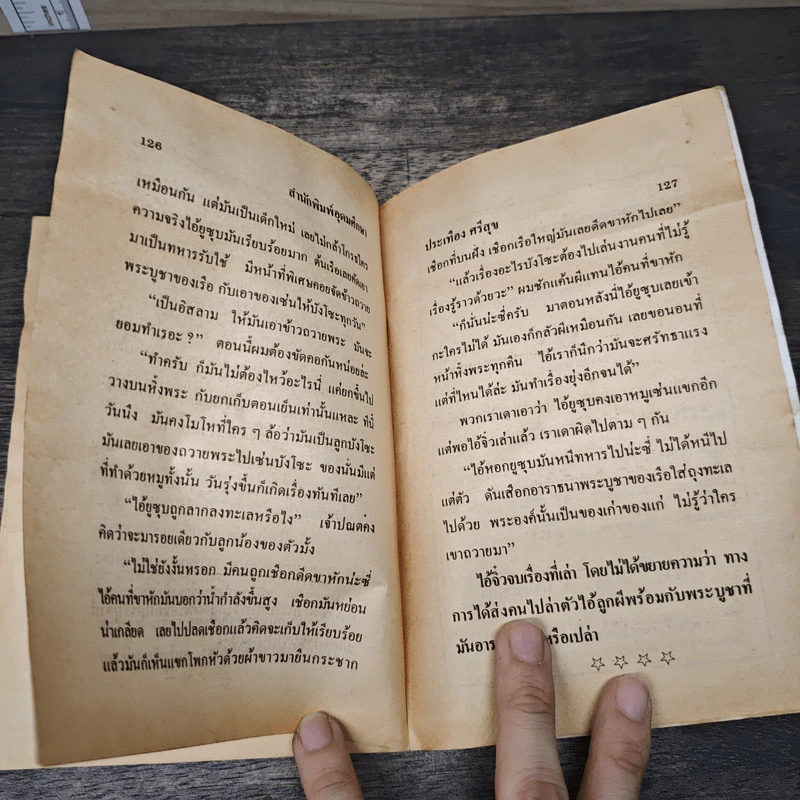 126
สำนักพิมพ์อุดมศึกษา
เหมือนกัน แต่มันเป็นเด็กใหม่ เลยไม่กล้าโกรธใคร
ความจริงไอ้ยูซุบมันเรียบร้อยมาก ต้นเรือเลยคัดเอา
มาเป็นทหารรับใช้ มีหน้าที่พิเศษคอยจัดข้าวถวาย
พระบูชาของเรือ กับเอาของเซ่นให้บังโซะทุกวัน”
“เป็นอิสลาม ให้มันเอาข้าวถวายพระ มันจะ
ยอมทำเรอะ ?” ตอนนี้ผมต้องขัดคอกันหน่อยล่ะ
“ทำครับ ก็มันไม่ต้องไหว้อะไรนี่ แค่ยกขึ้นไป
วางบนหิ้งพระ กับยกเก็บตอนเย็นเท่านั้นแหละ ทีนี้
วันนึง มันคงโมโหที่ใคร ๆ ล้อว่ามันเป็นลูกบังโซะ
มันเลยเอาของถวายพระไปเซ่นบังโซะ ของนั่นมีแต่
ที่ทำด้วยหมูทั้งนั้น วันรุ่งขึ้นก็เกิดเรื่องทันทีเลย”
“ไอ้ยูซุบถูกลากลงทะเลหรือไง” เจ้าปณตคง
คิดว่าจะมารอยเดียวกับลูกน้องของตัวมั้ง
“ไม่ใช่ยังงั้นหรอก มีคนถูกเชือกดีดขาหักน่ะซี่
ไอ้คนที่ขาหักมันบอกว่าน้ำกำลังขึ้นสูง เชือกมันหย่อน
น่าเกลียด เลยไปปลดเชือกแล้วคิดจะเก็บให้เรียบร้อย
แล้วมันก็เห็นแขกโพกหัวด้วยผ้าขาวมายืนกระชาก
127
ประเทือง ศรีสุข
เชือกที่บนฝั่ง เชือกเรือใหญ่มันเลยดีดขาหักไปเลย”
“แล้วเรื่องอะไรบังโซะต้องไปเล่นงานคนที่ไม่รู้
เรื่องรู้ราวด้วยวะ” ผมชักแค้นผีแทนไอ้คนที่ขาหัก
“ก็นั่นน่ะซี่ครับ มาตอนหลังนี่ไอ้ยูซุบเลยเข้า
กะใครไม่ได้ มันเองก็กลัวผีเหมือนกัน เลยขอนอนที่
หน้าหิ้งพระทุกคืน ไอ้เราก็นึกว่ามันจะศรัทธาแรง
แต่ที่ไหนได้ล่ะ มันทำเรื่องยุ่งอีกจนได้”
พวกเราเดาเอาว่า ไอ้ยูซุบคงเอาหมูเซ่นแขกอีก
แต่พอไอ้จิ๋วเล่าแล้ว เราเดาผิดไปตาม ๆ กัน
“ไอ้หอกยูซุบมันหนีทหารไปน่ะซี่ ไม่ได้หนีไป
แต่ตัว ดันเสือกอาราธนาพระบูชาของเรือใส่ถุงทะเล
ไปด้วย พระองค์นั้นเป็นของเก่าของแก่ ไม่รู้ว่าใคร
เขาถวายมา”
ไอ้จิ๋วจบเรื่องที่เล่า โดยไม่ได้ขยายความว่า ทาง
การได้ส่งคนไปล่าตัวไอ้ลูกผีพร้อมกับพระบูชาที่
มันอาร หรือเปล่า